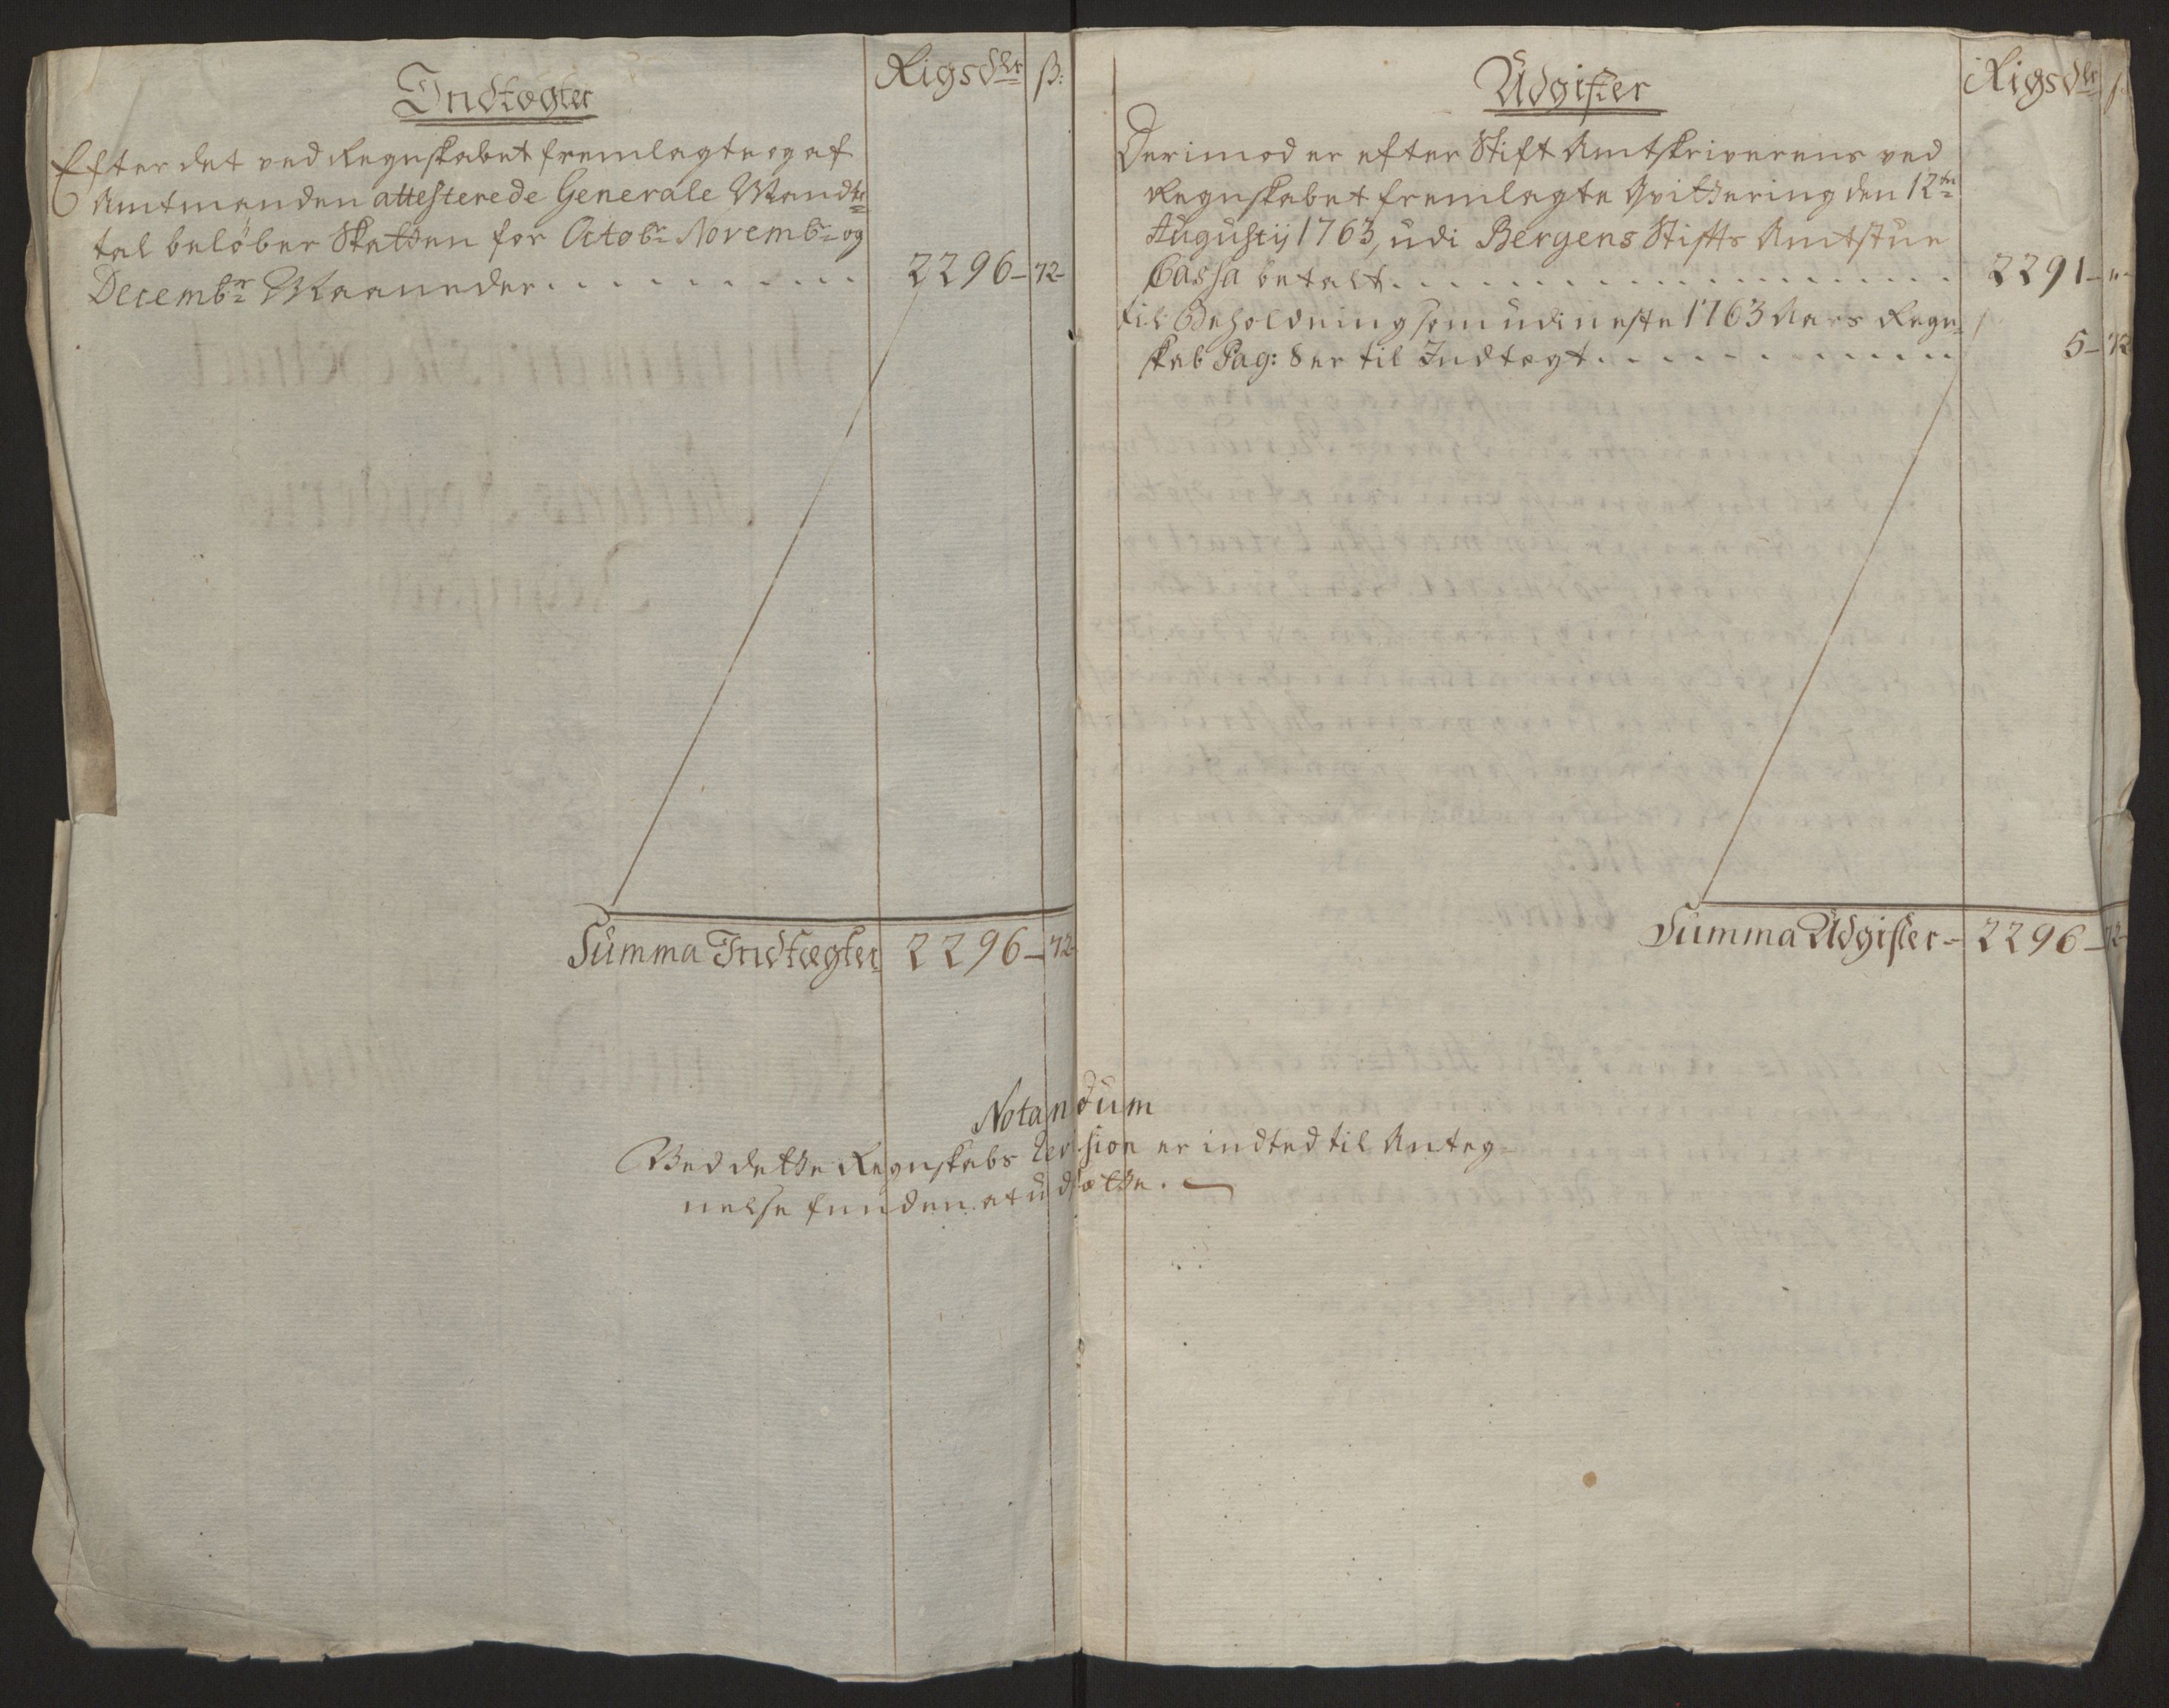 Indtægter
Rigsdlr ß:
Efter det ved Regnskabet fremlagte og af
Amtmanden attesterede Generale Mandtr
tal beløber Skatten for Octobr Novembr og
Decembr Maaneder . . . . . . . . . . 2296 – 72 –
Summa Indtægter 2296 – 72 –
Udgifter
Rigsdlr ß
Derimod er efter Stift Amtskriverens ved
Regnskabet fremlagte Qvittering den 12te
Augustij 1763, udi Bergens Stifts Amtstue
Cassa betalt . . . . . . . . . . 2291 – „ –
til Beholdning som udi neste 1763 Aars Regn-
skab Pag: 8 er til Indtægt . . . . . . . . . . 5 – 72
Summa Udgifter – 2296 – 72 –
Notandum
Ved dette Regnskabs Revision er indted til Anteg-
nelse funden at udsætte. –